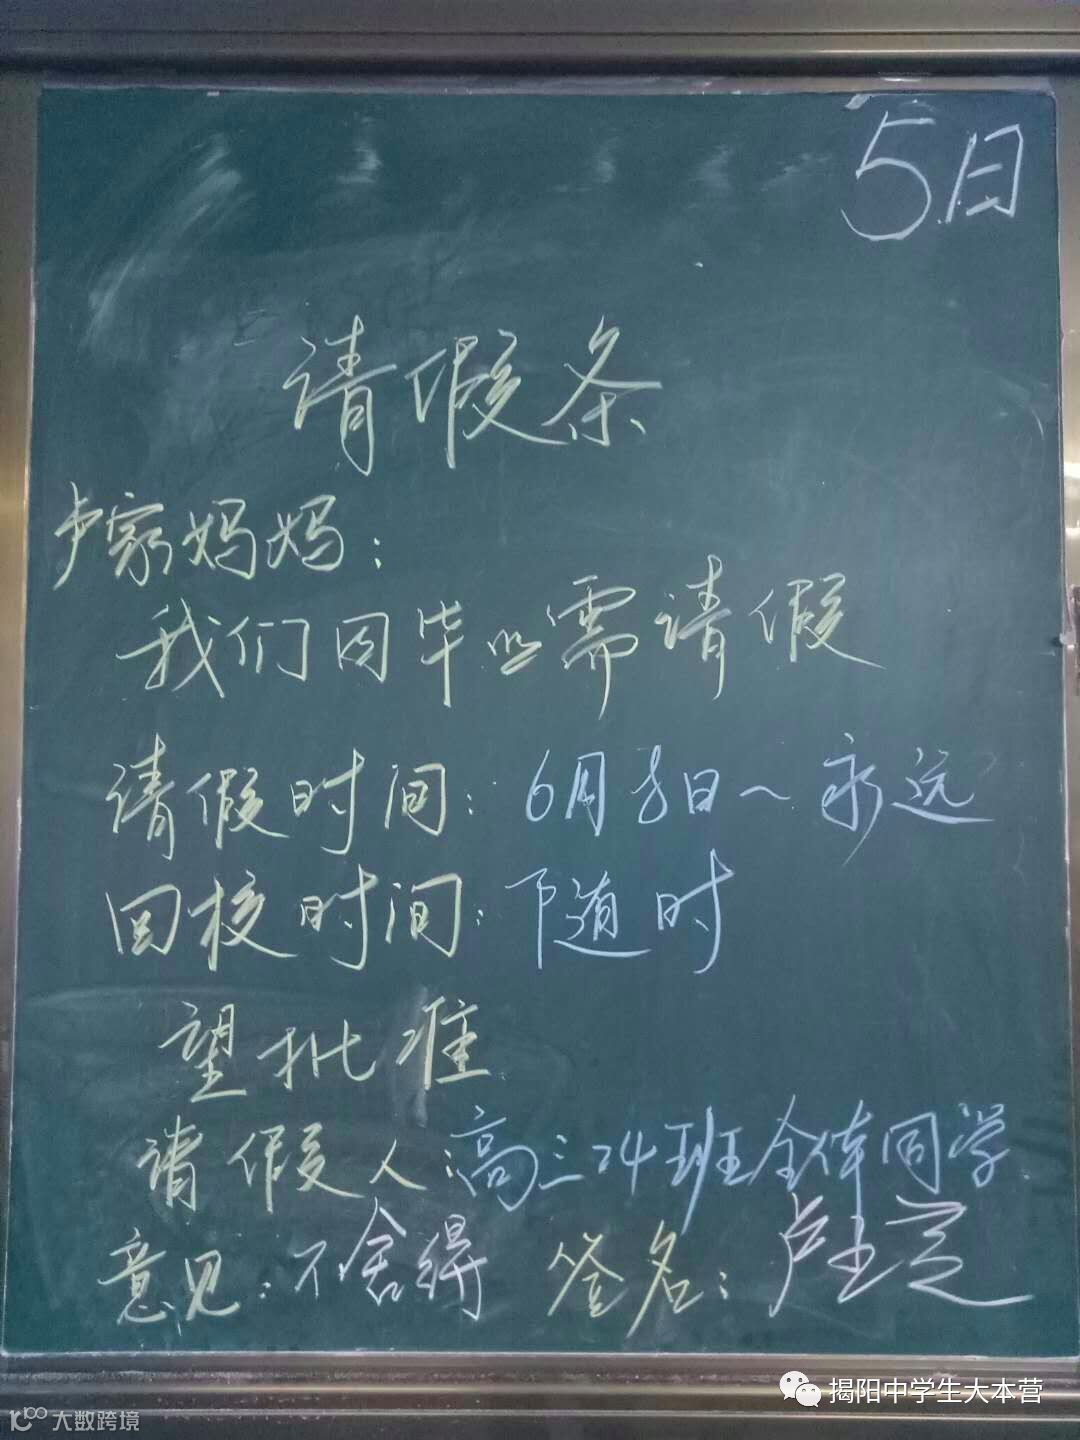 5日
请假条
卢家妈妈：
我们因毕业需请假
请假时间：6月8日~永远
回校时间：下随时
望批准
请假人：高三24班全体同学
意见：不舍得 签名：卢
揭阳中学生大本营
10100 大数跨境